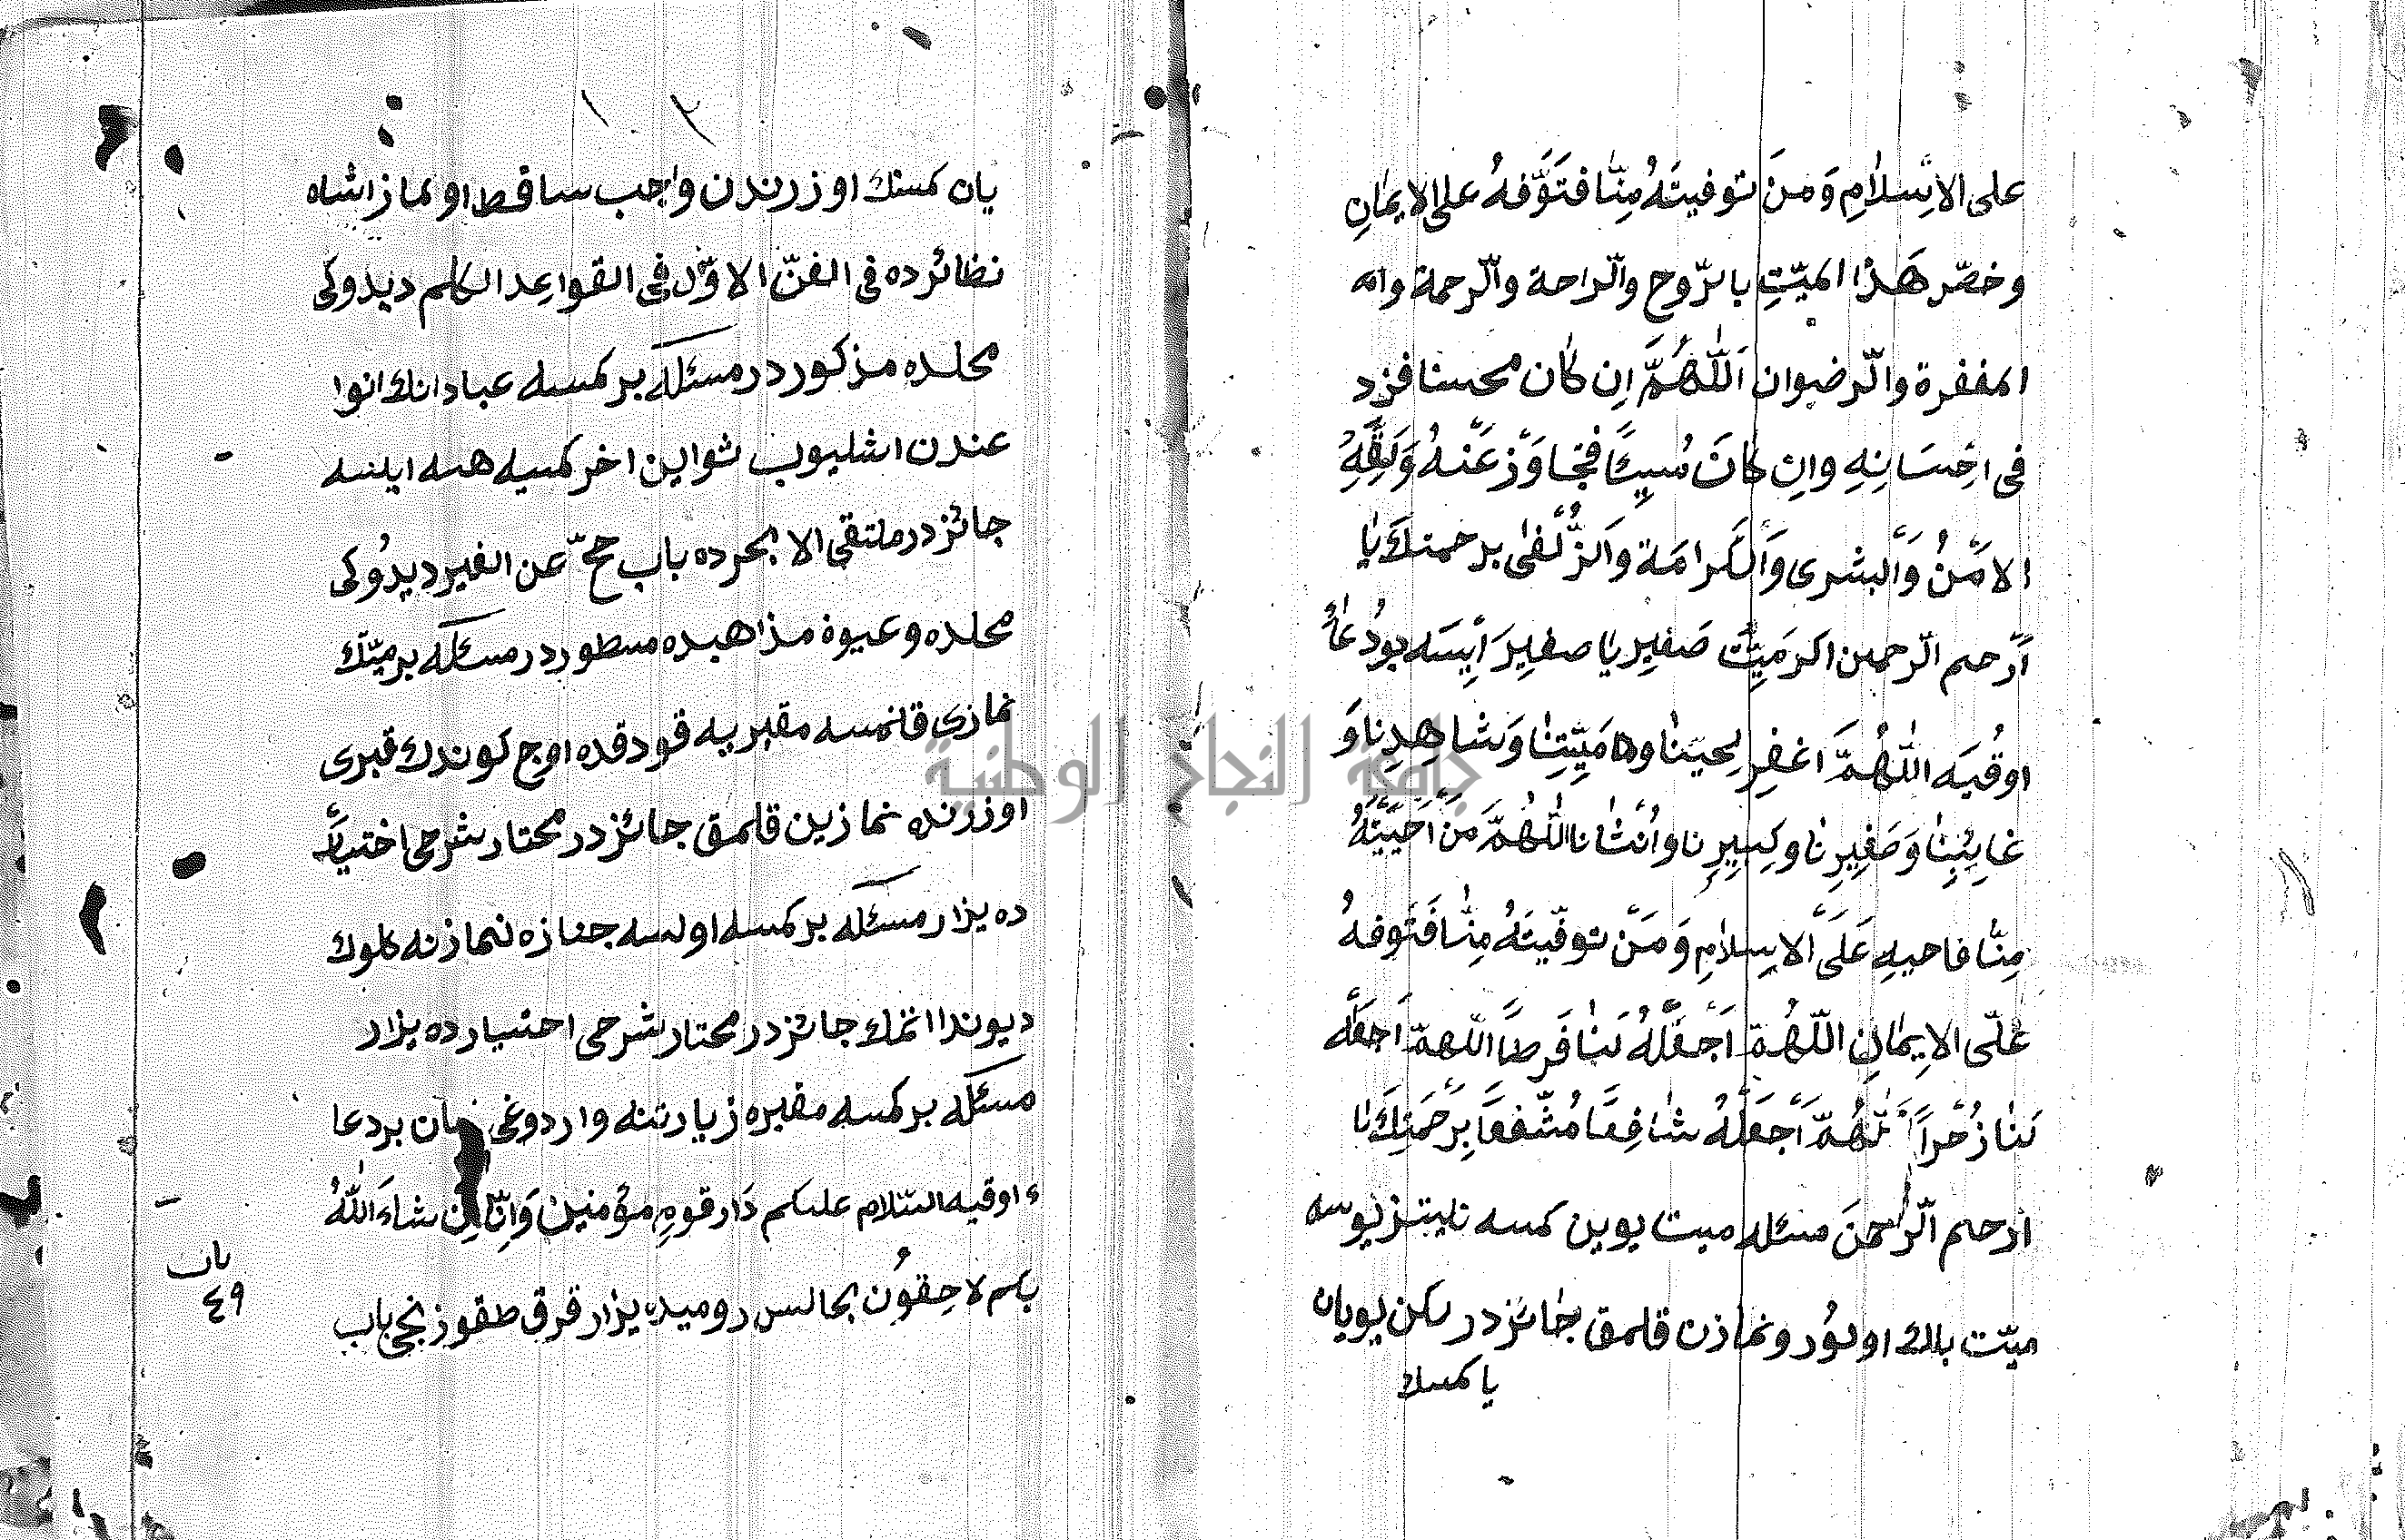 على الاسلامِ وَمَنَ توفيتَهُ مِنّا فتَوَّفهُ على الايمانِ
وخصّر هَذا الميّتِ بالرّوح والّراحة والّرحمة وام
المغفرة والّرضوان اَللّٰهُمَّ اِن كان محسنا فزد
فى احْسَانِهِ وانِ كانَ مُسِيئاً فتجاوَزعَنْهُ وَلَقِّهِ
الامْنُ وَالبشرى وَالكرامَة والزُّلفى برحمتك يا
اَرحم الّرحمين اكر مَيِّت صَغير يا صغيرَ اَيسَه بودُعاُ
اوقُيَه اللّٰهُمَّ اغفِر لِحيّنا وما مَيِّتِنا وَشاهِدِنا وَ
غايِبِنا وَصَغِيرِنا وكبيرِنا واُنثانا اللّٰهُمَّ مَنَ اَحَيَيْتَهُ
مِنّا فاحيهِ عَلَى الاسِلامِ وَمَنْ توفّيتَهُ مِنّا فَتَوفهُ
عَلَى الاِيمانِ اللّهُمّ اَجْعَلْهُ لنا فَرطاً اللّهمّ اَجعله
لنا ذُخراً اللّهُمّ اَجعَلهُ شافِعًا مُشَفّعاً بِرَحمَتِكَ يا
ارحم الّرحمنَ مسئله ميت يوين كمسه نايتز يوسه
ميّت بالك اولوُر ونمازن قلمق جائز در لكن يويان
يا كمسك
يان كمسنك اوزرندن واجب ساقط اولماز اشاه
نظائرده فى الفنّ الاوّل فى القواعد الكلم ديدوكى
محلده مذكور در مسئله بر كمسه عباداتك انوا
عندن اشليوب ثوابن اخر كمسيه هبه ايلسه
جائز در ملتقى الابحرده باب حجّ عن الغير ديدُوكى
محلده وعيوة مذاهبده مسطور در مسئله بر ميّتك
نمازى قلنمسه مقبريه قودقده اوج كوندك قبرى
اوزرنده نمازين قلمق جائز در محتار شرحى اختيا
ده يزار مسئله بر كمسه اولسه جنازه نمازنه كلوك
ديوندا اتمك جائز در محتار شرحى احتيارده يزار
مسئله بر كمسه مقبره زيارتنه واردوغى زمان بر دعا
ء اوقيه السّلام عليكم دَار قومٍ مؤمنين وَاِنّا اِن شاءَ اللّٰهُ
بكم لاحِقوُن مجالس روميده يزار قرق طقوزنجى باب
باب
٤٩